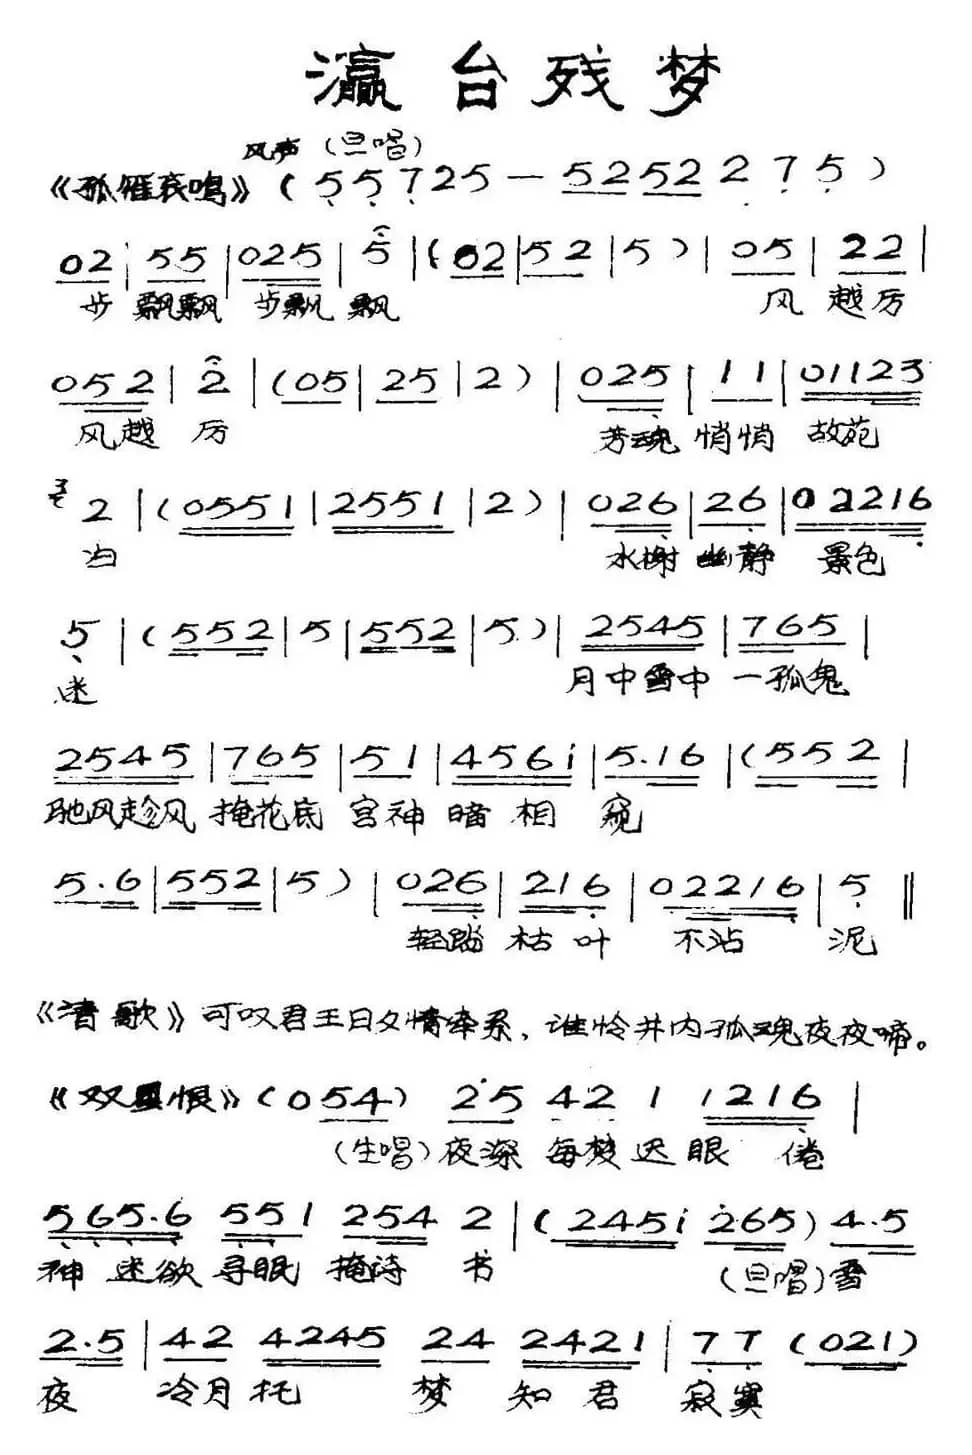 瀛台残梦
风声（旦唱）
《孤雁哀鸣》（5 5 7 2 5 — 5 2 5 2 2 7 5）
0 2 | 5 5 | 0 2 5 | 5 | （0 2 | 5 2 | 5 ） | 0 5 | 2 2 |
步 飘飘 步飘 飘 风 越厉
0 5 2 | 2 | （0 5 | 2 5 | 2 ） | 0 2 5 | 1 1 | 0 1 1 2 3
风越 厉 芳魂 悄悄 故苑
2 | （0 5 5 1 | 2 5 5 1 | 2 ） | 0 2 6 | 2 6 | 0 2 2 1 6
归 水榭 幽静 景色
5 | （5 5 2 | 5 | 5 5 2 | 5 ） | 2 5 4 5 | 7 6 5 |
迷 月中雪中 一孤鬼
2 5 4 5 | 7 6 5 | 5 1 | 4 5 6 i | 5 . 1 6 | （5 5 2 |
驰风趁风 掩花底 宫神 暗 相 窥
5 . 6 | 5 5 2 | 5 ） | 0 2 6 | 2 1 6 | 0 2 2 1 6 | 5 ‖
轻踏 枯 叶 不沾 泥
《清歌》可叹君王日夕情牵系，谁怜井内孤魂夜夜啼。
《双星恨》（0 5 4） 2 5 4 2 1 1 2 1 6 |
（生唱）夜深 每梦 迟 眼 倦
5 6 5 . 6 5 5 1 2 5 4 2 | （2 4 5 i 2 6 5） 4 . 5
神 迷欲 寻眠 掩诗 书 （旦唱）雪
2 . 5 | 4 2 4 2 4 5 2 4 2 4 2 1 | 7 7 （0 2 1）
夜 冷月 托 梦 知 君 寂寞